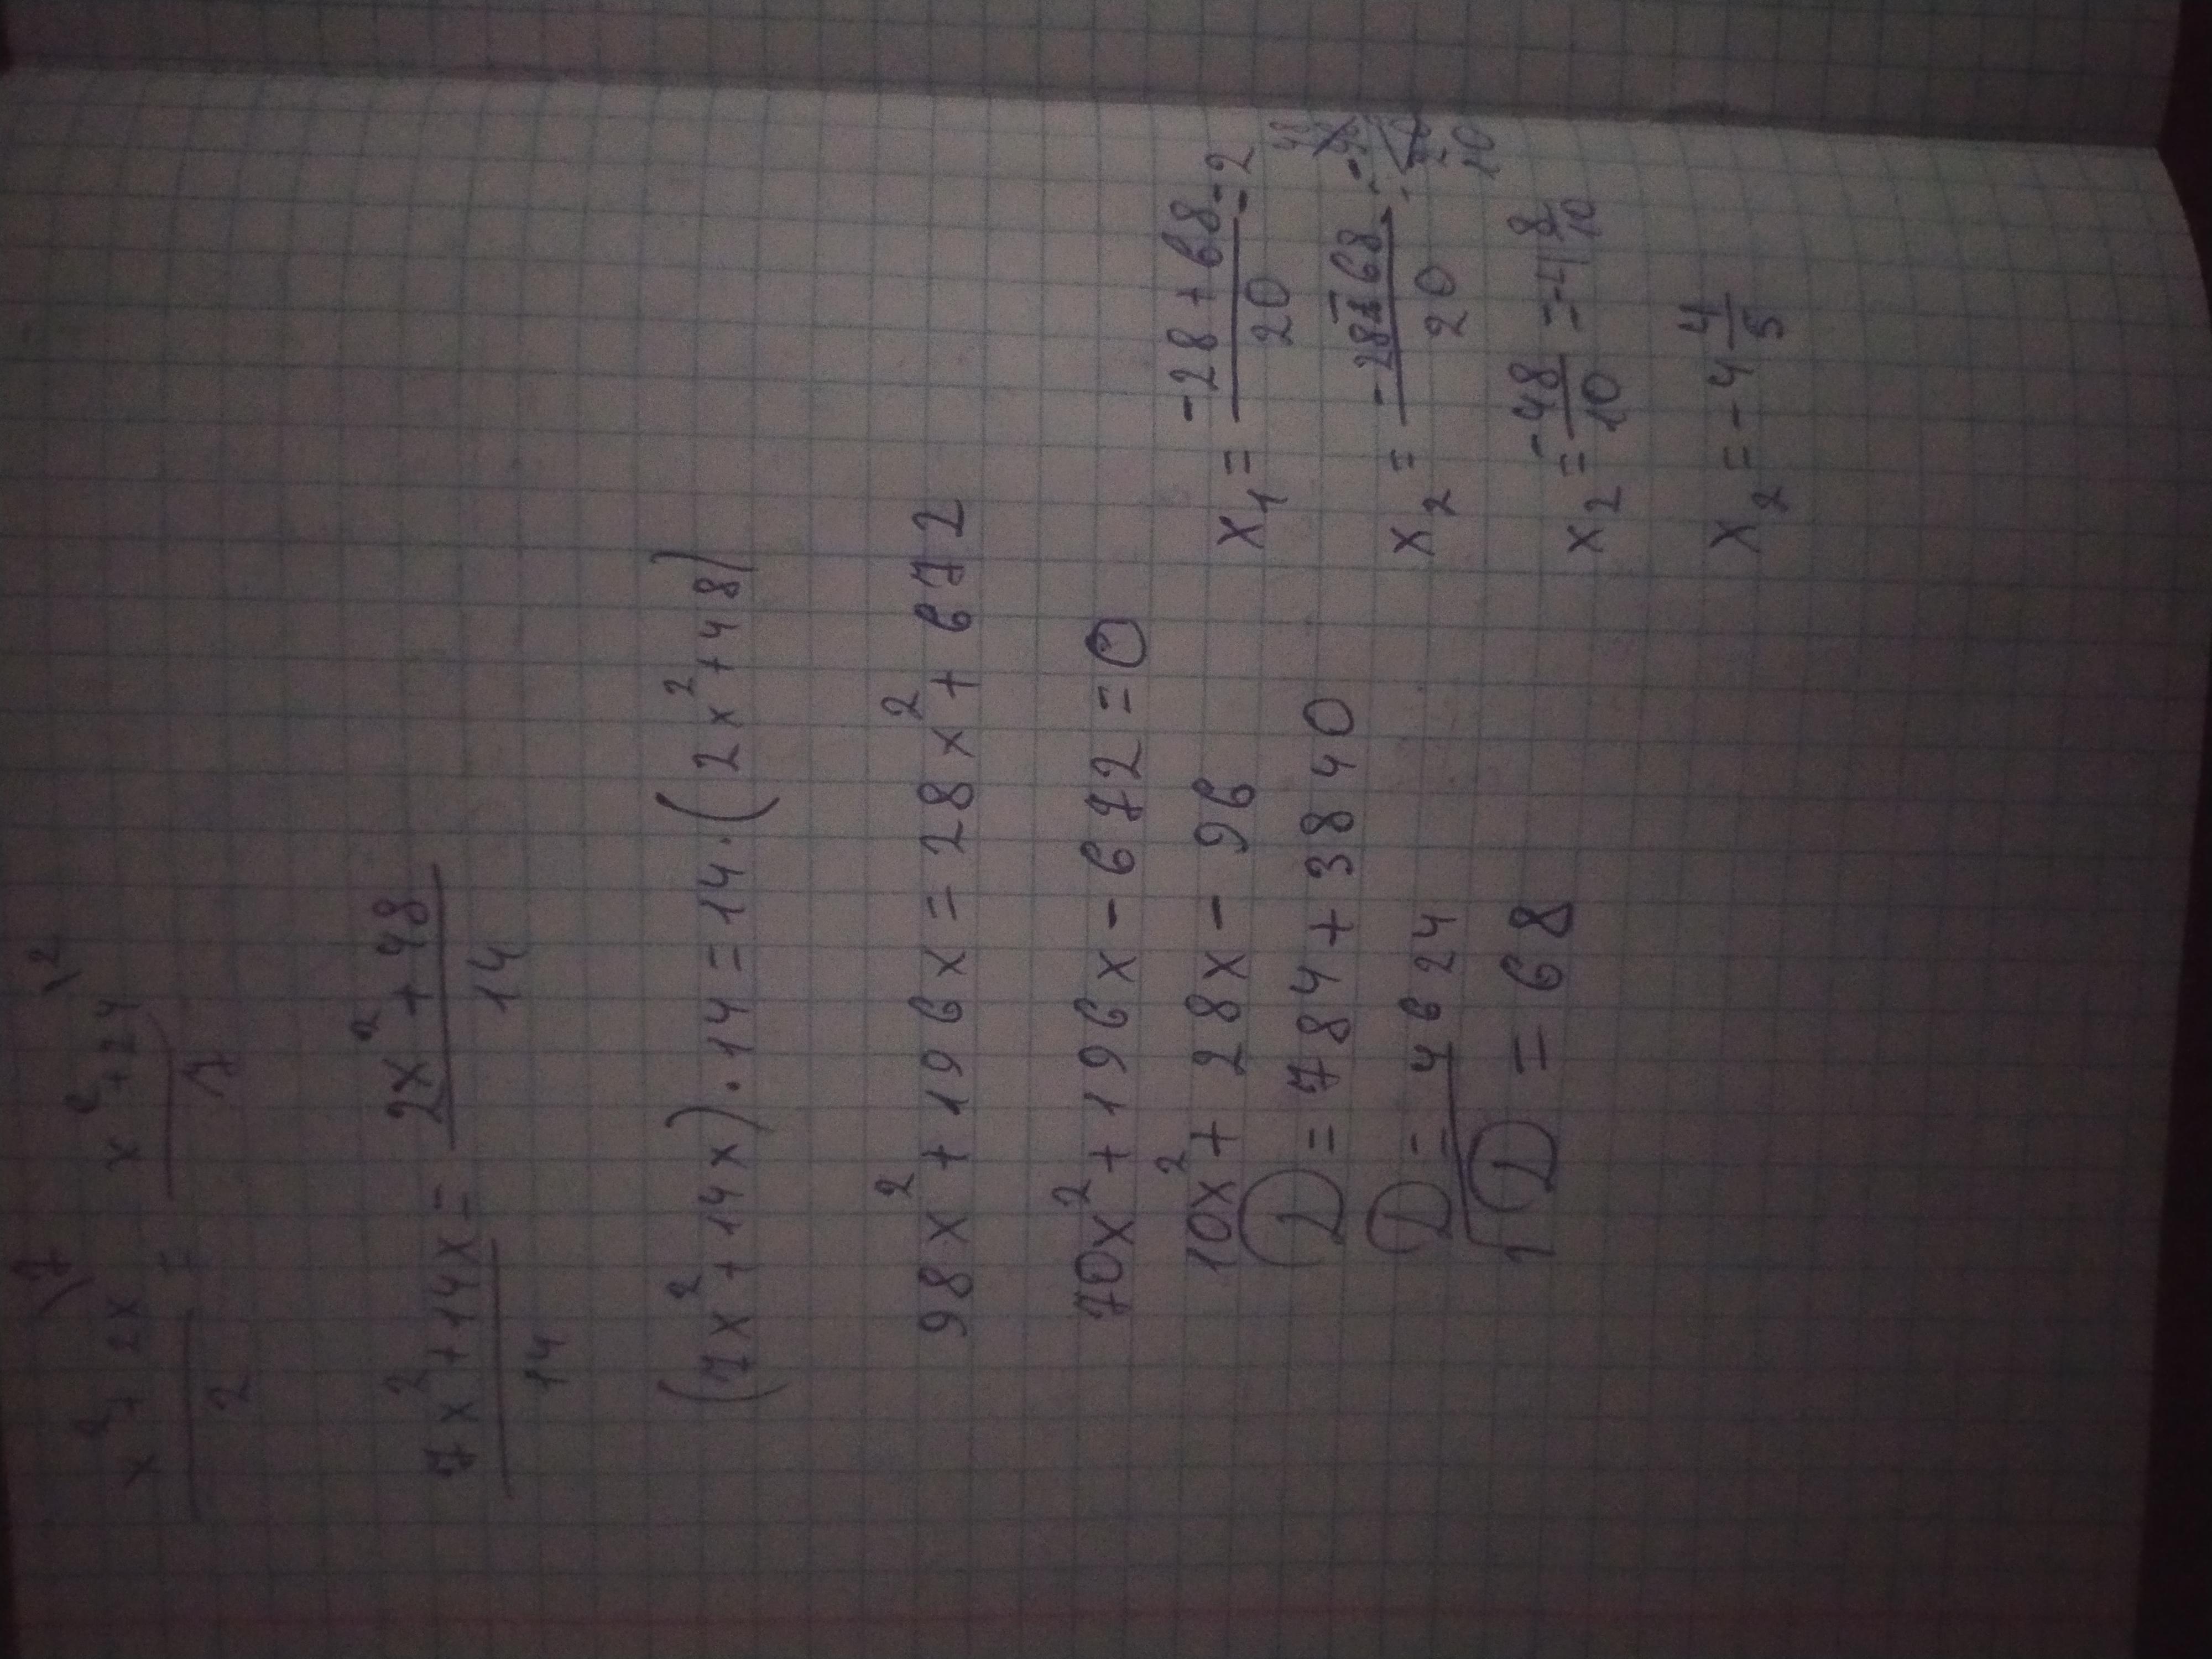 x² + 2x \7 / 2 = x² + 24 \2 / 7
7x² + 14x / 14 = 2x² + 48 / 14
(7x² + 14x) · 14 = 14 · (2x² + 48)
98x² + 196x = 28x² + 672
70x² + 196x - 672 = 0
10x² + 28x - 96
D = 784 + 3840
D = 4624
√D = 68
x₁ = -28 + 68 / 20 = 2
x₂ = -28 - 68 / 20 =
x₂ = -48/10 = -4 8/10
x₂ = -4 4/5